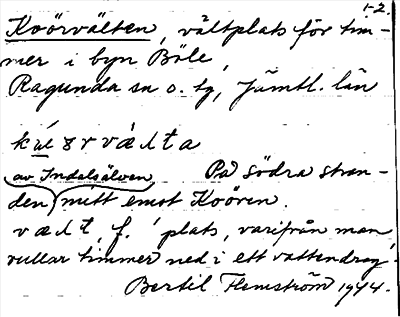 1-2.
Koörvälten, vältplats för tim-
mer i byn Böle,
Ragunda sn o. tg, Jämtl. län
av Indalsälven På södra stran-
den mitt emot Koören.
vædt, f. 'plats, varifrån man
rullar timmer ned i ett vattendrag'.
Bertil Flemström 1944.